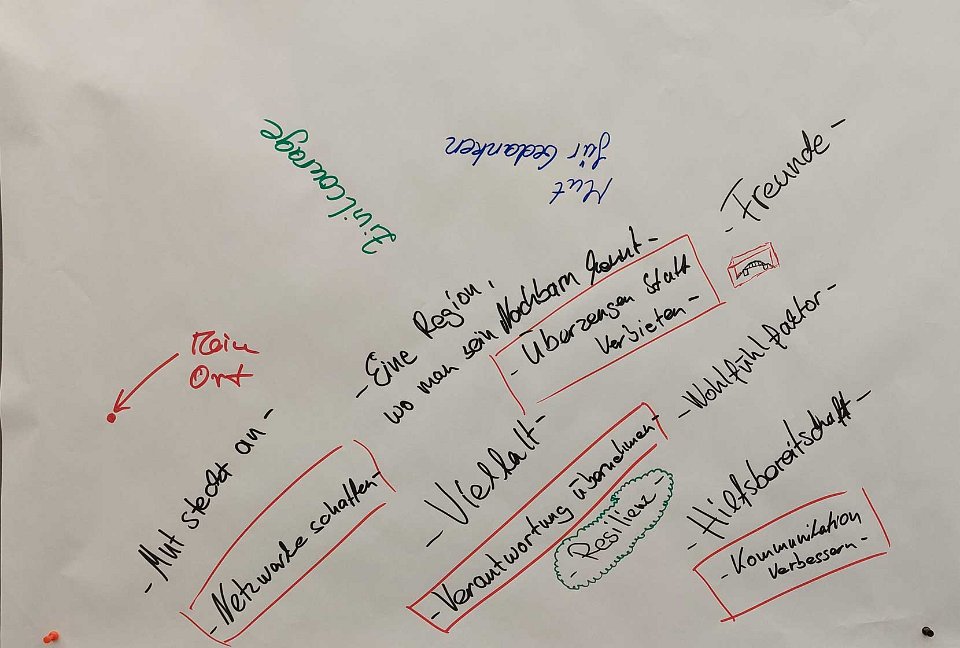 Zivilcourage
Mut
für Gedanken
- Freunde -
- Eine Region,
wo man sein Nachbarn kennt -
- Überzeugen statt
Verbieten -
Mein
Ort
- Wohlfühlfaktor -
- Mut steckt an -
- Netzwerke schaffen -
- Vielfalt -
- Verantwortung übernehmen -
- Resilienz -
- Hilfsbereitschaft -
- Kommunikation
verbessern -